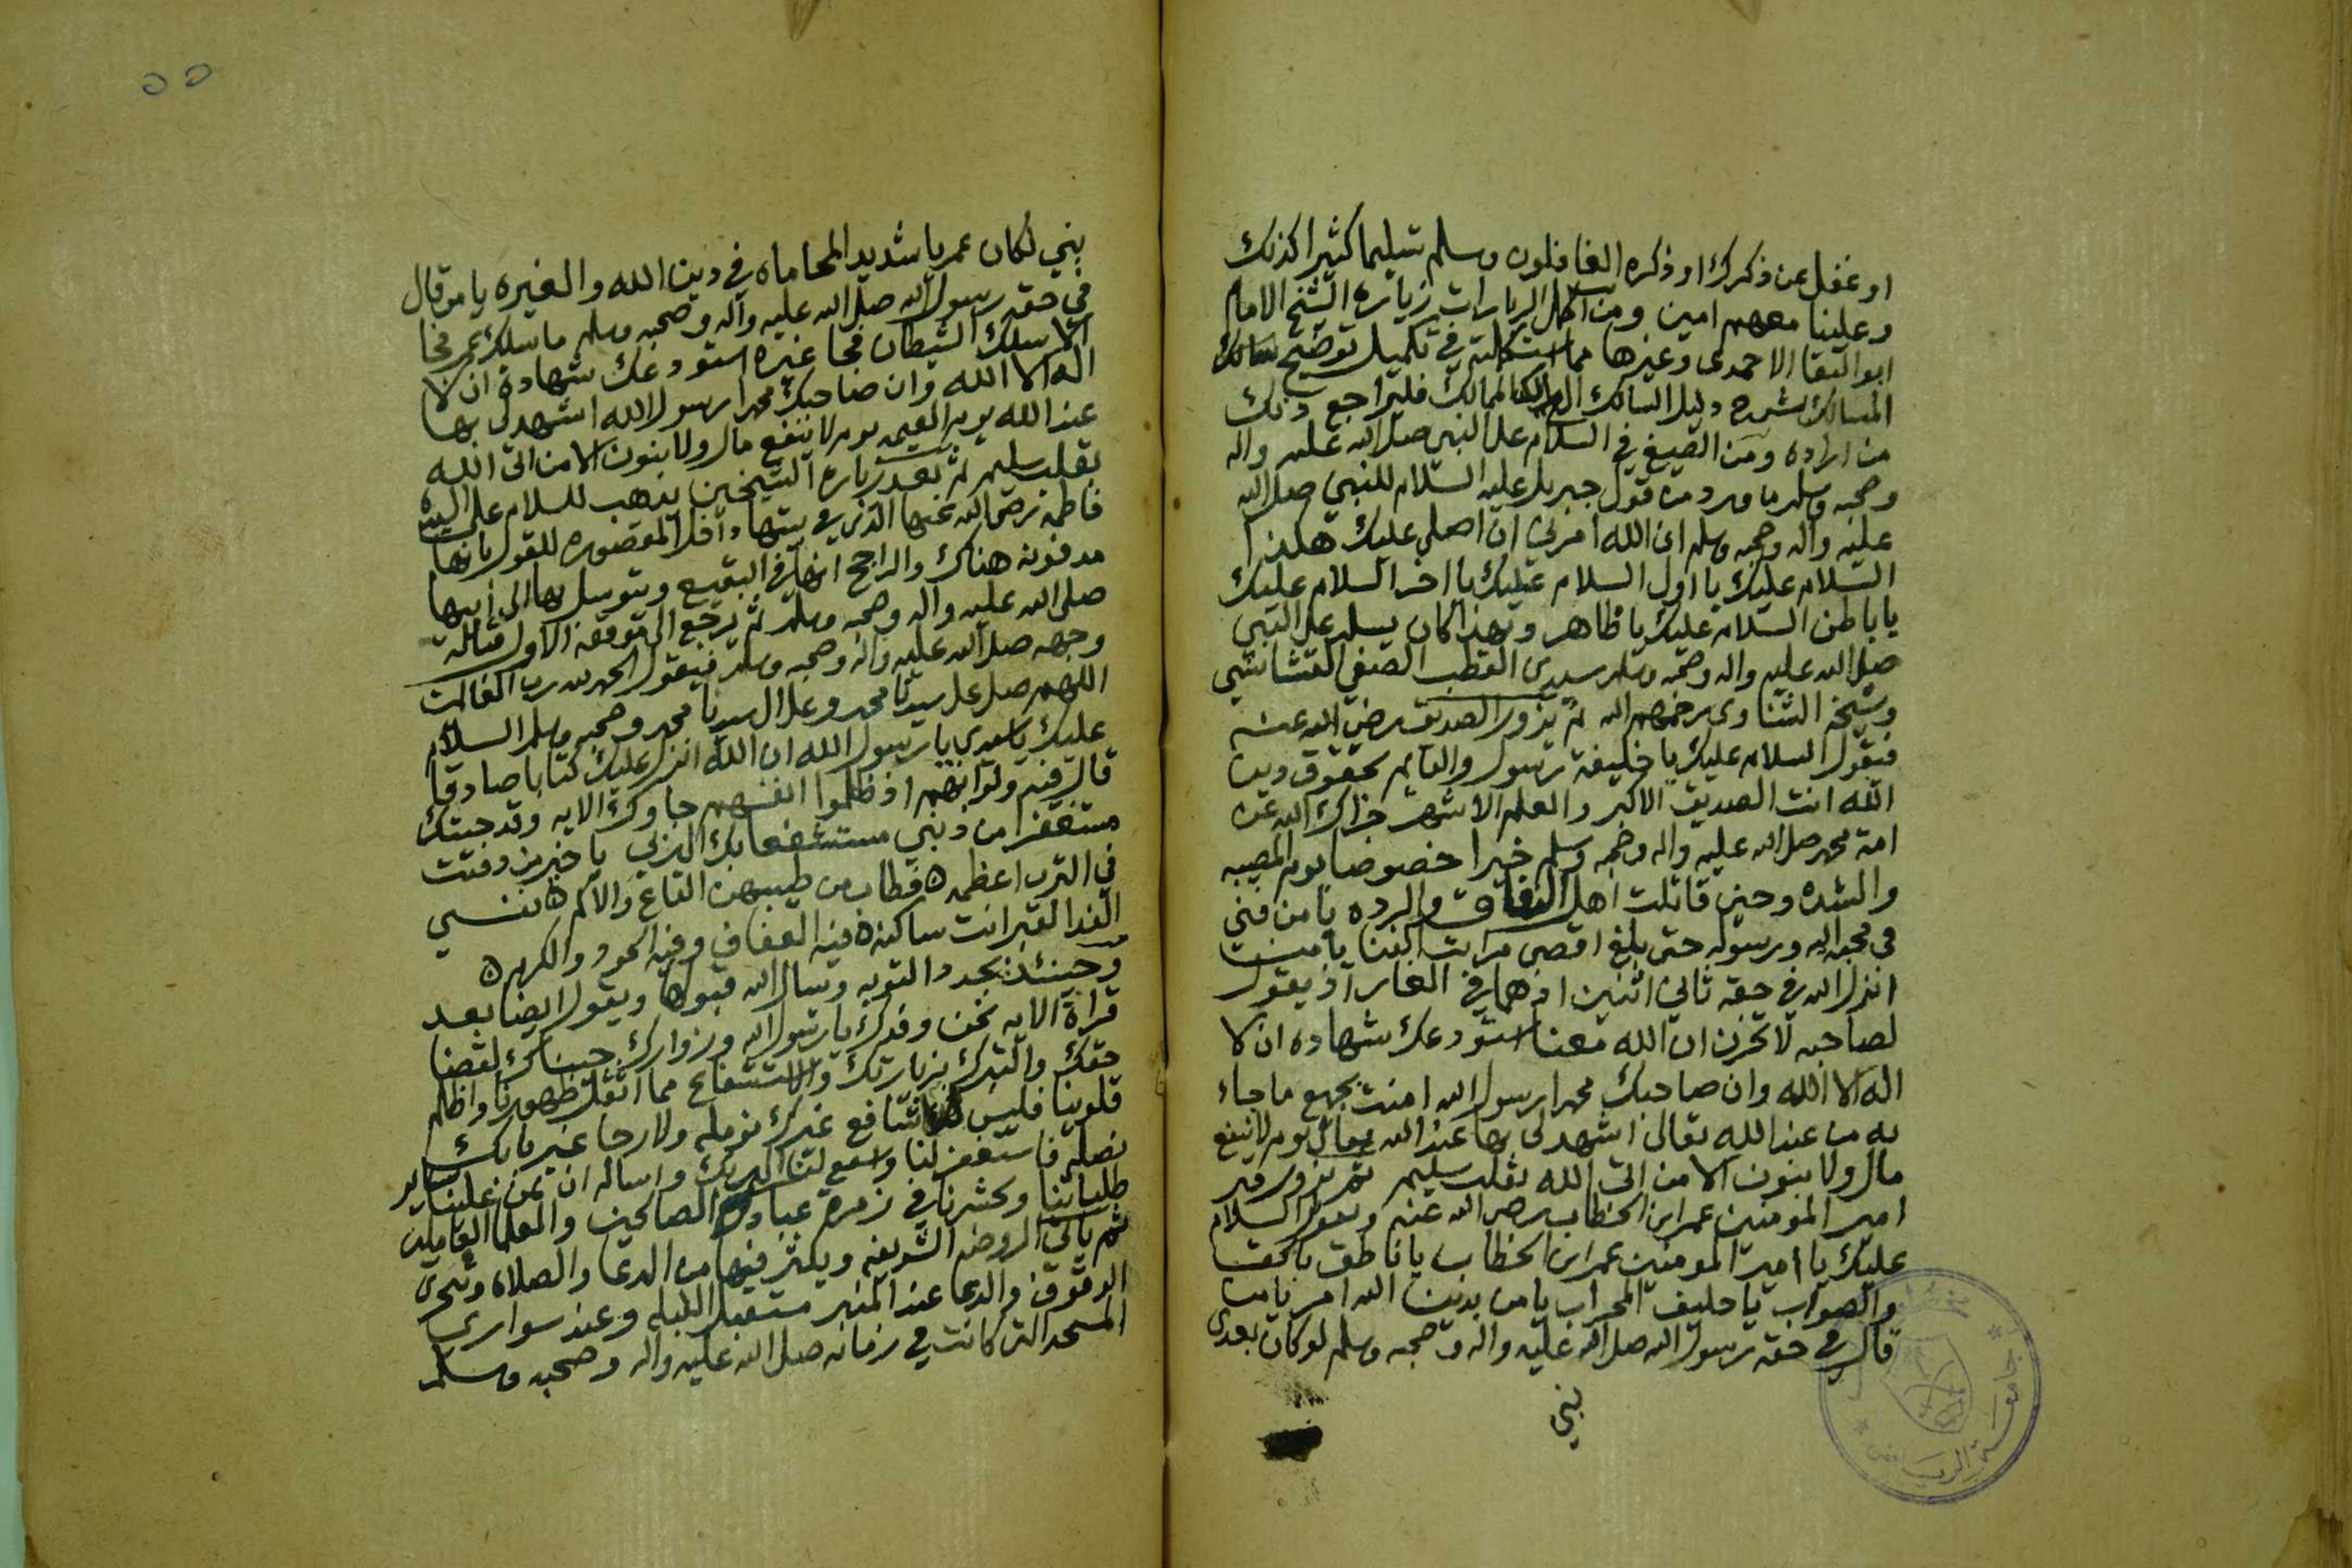 او غفل عن ذكرك او ذكره الغافلون وسلم تسليما كثيرا كذلك
وعلينا معهم امين ومن اكمل الزيارات زيارة الشيخ الامام
ابو البقا الاحمدى وغيرها مما استكملته في تكميل توضيح
المسالك شرح دليل السالك المالك فليراجع ذلك
من اراده ومن الصيغ في السلام على النبي صلى الله عليه واله
وصحبه وسلم ما ورد من قول جبريل عليه السلام للنبي صلى الله
عليه واله وصحبه وسلم ان الله امرني ان اصلي عليك هكذا
السلام عليك يا اول السلام عليك يا اخر السلام عليك
يا باطن السلام عليك يا ظاهر وبهذا كان يسلم على النبي
صلى الله عليه واله وصحبه وسلم سيدى القطب الصفي القشاشي
وشيخه الشناوى رحمهم الله ثم يزور الصديق رضي الله عنه
فيقول السلام عليك يا خليفة رسول والقايم بحقوق دين
الله انت الصديق الاكبر والعلم الاشهر جزاك الله عن
امة محمد صلى الله عليه واله وصحبه وسلم خيرا خصوصا يوم المصيبه
والشده وحين قاتلت اهل النفاق والرده يا من فنى
في محبة الله ورسوله حتى بلغ اقصى مراتب الفنا يا من
انزل الله في حقه ثاني اثنين اذ هما في الغار اذ يقول
لصاحبه لا تحزن ان الله معنا استودعك شهادة ان لا
اله الا الله وان صاحبك محمدا رسول الله امنت بجميع ما جاء
به من عند الله تعالى اشهد لي بها عند الله تعالى يوم لا ينفع
مال ولا بنون الا من اتى الله بقلب سليم ثم يزور قبر
امير المومنين عمر ابن الخطاب رضي الله عنه ويقول السلام
عليك يا امير المومنين عمر ابن الخطاب يا ناطق بالحق
والصواب يا حليف المحراب يا من بدين الله امر يا من
قال في حقه رسول الله صلى الله عليه واله وصحبه وسلم لو كان بعدى
بني
جامعة الرياض
٥٥
بني لكان عمر يا شديد المحاماه في دين الله والغيره يا من قال
في حقه رسول الله صلى الله عليه وآله وصحبه وسلم ما سلك عمر فجا
الا سلك الشيطان فجا غيره استودعك شهادة ان لا
اله الا الله وان صاحبك محمدا رسول الله اشهد لي بها
عند الله يوم القيمه يوم لا ينفع مال ولا بنون الا من اتى الله
بقلب سليم ثم بعد زيارة الشيخين يذهب للسلام على السيده
فاطمه رضي الله عنها الذى في بيتها داخل المقصوره للقول بانها
مدفونه هناك والراجح انها في البقيع ويتوسل بها الى ابيها
صلى الله عليه واله وصحبه وسلم ثم يرجع الى موقفه الاول قبالة
وجهه صلى الله عليه واله وصحبه وسلم فيقول الحمد لله رب العالمين
اللهم صل على سيدنا محمد وعلى ال سيدنا محمد وصحبه وسلم السلام
عليك يا سيدى يا رسول الله ان الله انزل عليك كتابا صادقا
قال فيه ولو انهم اذ ظلموا انفسهم جاوك الايه وقد جيتك
مستغفرا من ذنبي مستشفعا بك الى ربي يا خير من دفنت
في الترب اعظمه ٥ فطاب من طيبهن القاع والاكم ٥ نفسي
الفدا لقبر انت ساكنه ٥ فيه العفاف وفيه الجود والكرم ٥
وحينئذ يجدد التوبه ويسال الله قبولها ويقول ايضا بعد
قراءة الايه نحن وفدك يا رسول الله وزوارك جيناك لقضا
حقك والتبرك بزيارتك والاستشفاع مما اثقل ظهورنا واظلم
قلوبنا فليس لنا شافع غيرك نومله ولا رجا غير بابك
نصله فاستغفر لنا واشفع لنا الى ربك واساله ان يمن علينا بساير
طلباتنا ويحشرنا في زمرة عباده الصالحين والعلما العاملين
ثم ياتي الروضه الشريفه ويكثر فيها من الدعا والصلاه ويتحرى
الوقوف والدعا عند المنبر مستقبل القبله وعند سوارى
المسجد التي كانت في زمانه صلى الله عليه واله وصحبه وسلم